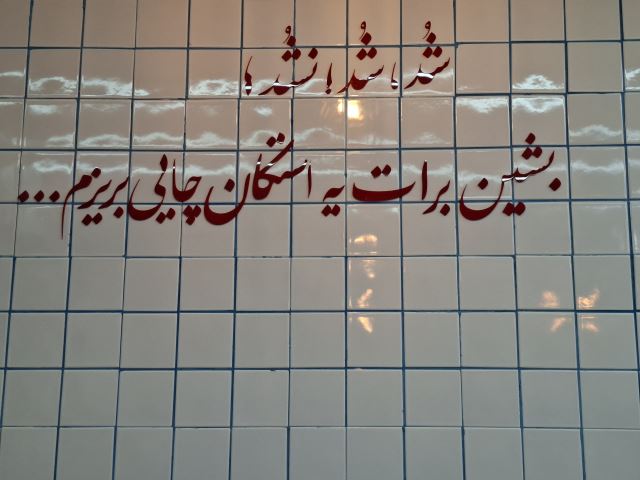 شُد، شُد! نشُد!
بشین برات یه استکان چایی بریزم...